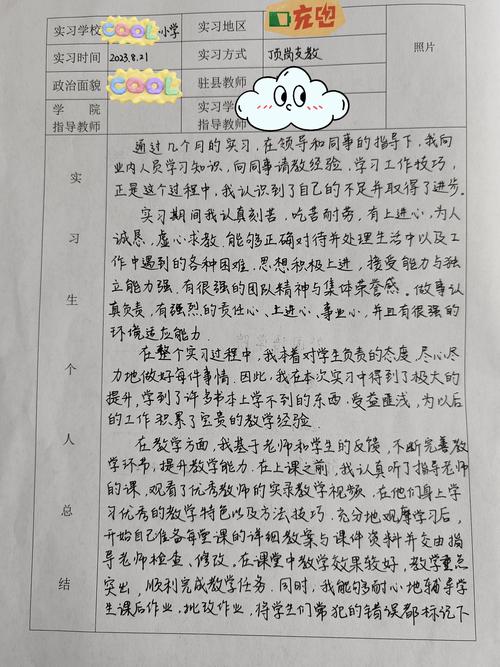 实习学校 COOL 小学 实习地区 充电 照片
实习时间 2023.8.21 实习方式 顶岗支教
政治面貌 COOL 驻县教师
学院指导教师 实习学
指导教师
实习生个人总结
通过几个月的实习，在领导和同事的指导下，我向
业内人员学习知识，向同事请教经验，学习工作技巧，
正是这个过程中，我认识到了自己的不足并取得了进步。
实习期间我认真刻苦，吃苦耐劳，有上进心，为人
诚恳，虚心求教，能够正确对待并处理生活中以及工
作中遇到的各种困难，思想积极上进，接受能力与独
立能力强，有很强的团队精神与集体荣誉感。做事认
真负责，有强烈的责任心、上进心、事业心，并且有很强的
环境适应能力．
在整个实习过程中，我本着对学生负责的态度，尽心尽
力地做好每件事情．因此，我在本次实习中得到了极大的
提升，学到了许多书本上学不到的东西，受益匪浅，为以后
的工作积累了宝贵的教学经验．
在教学方面，我基于老师和学生的反馈，不断完善教
学环节，提升教学能力．在上课之前，我认真听了指导老师
的课，观看了优秀教师的实录教学视频，在他们身上学
习优秀的教学特色以及方法技巧．充分地观摩学习后，
开始自己准备每堂课的详细教案与课件资料并交由指
导老师检查、修改．在课堂中教学效果较好，教学重点
突出，顺利完成教学任务．同时，我能够耐心地辅导学
生课后作业，批改作业，将学生们常犯的错误都标记下